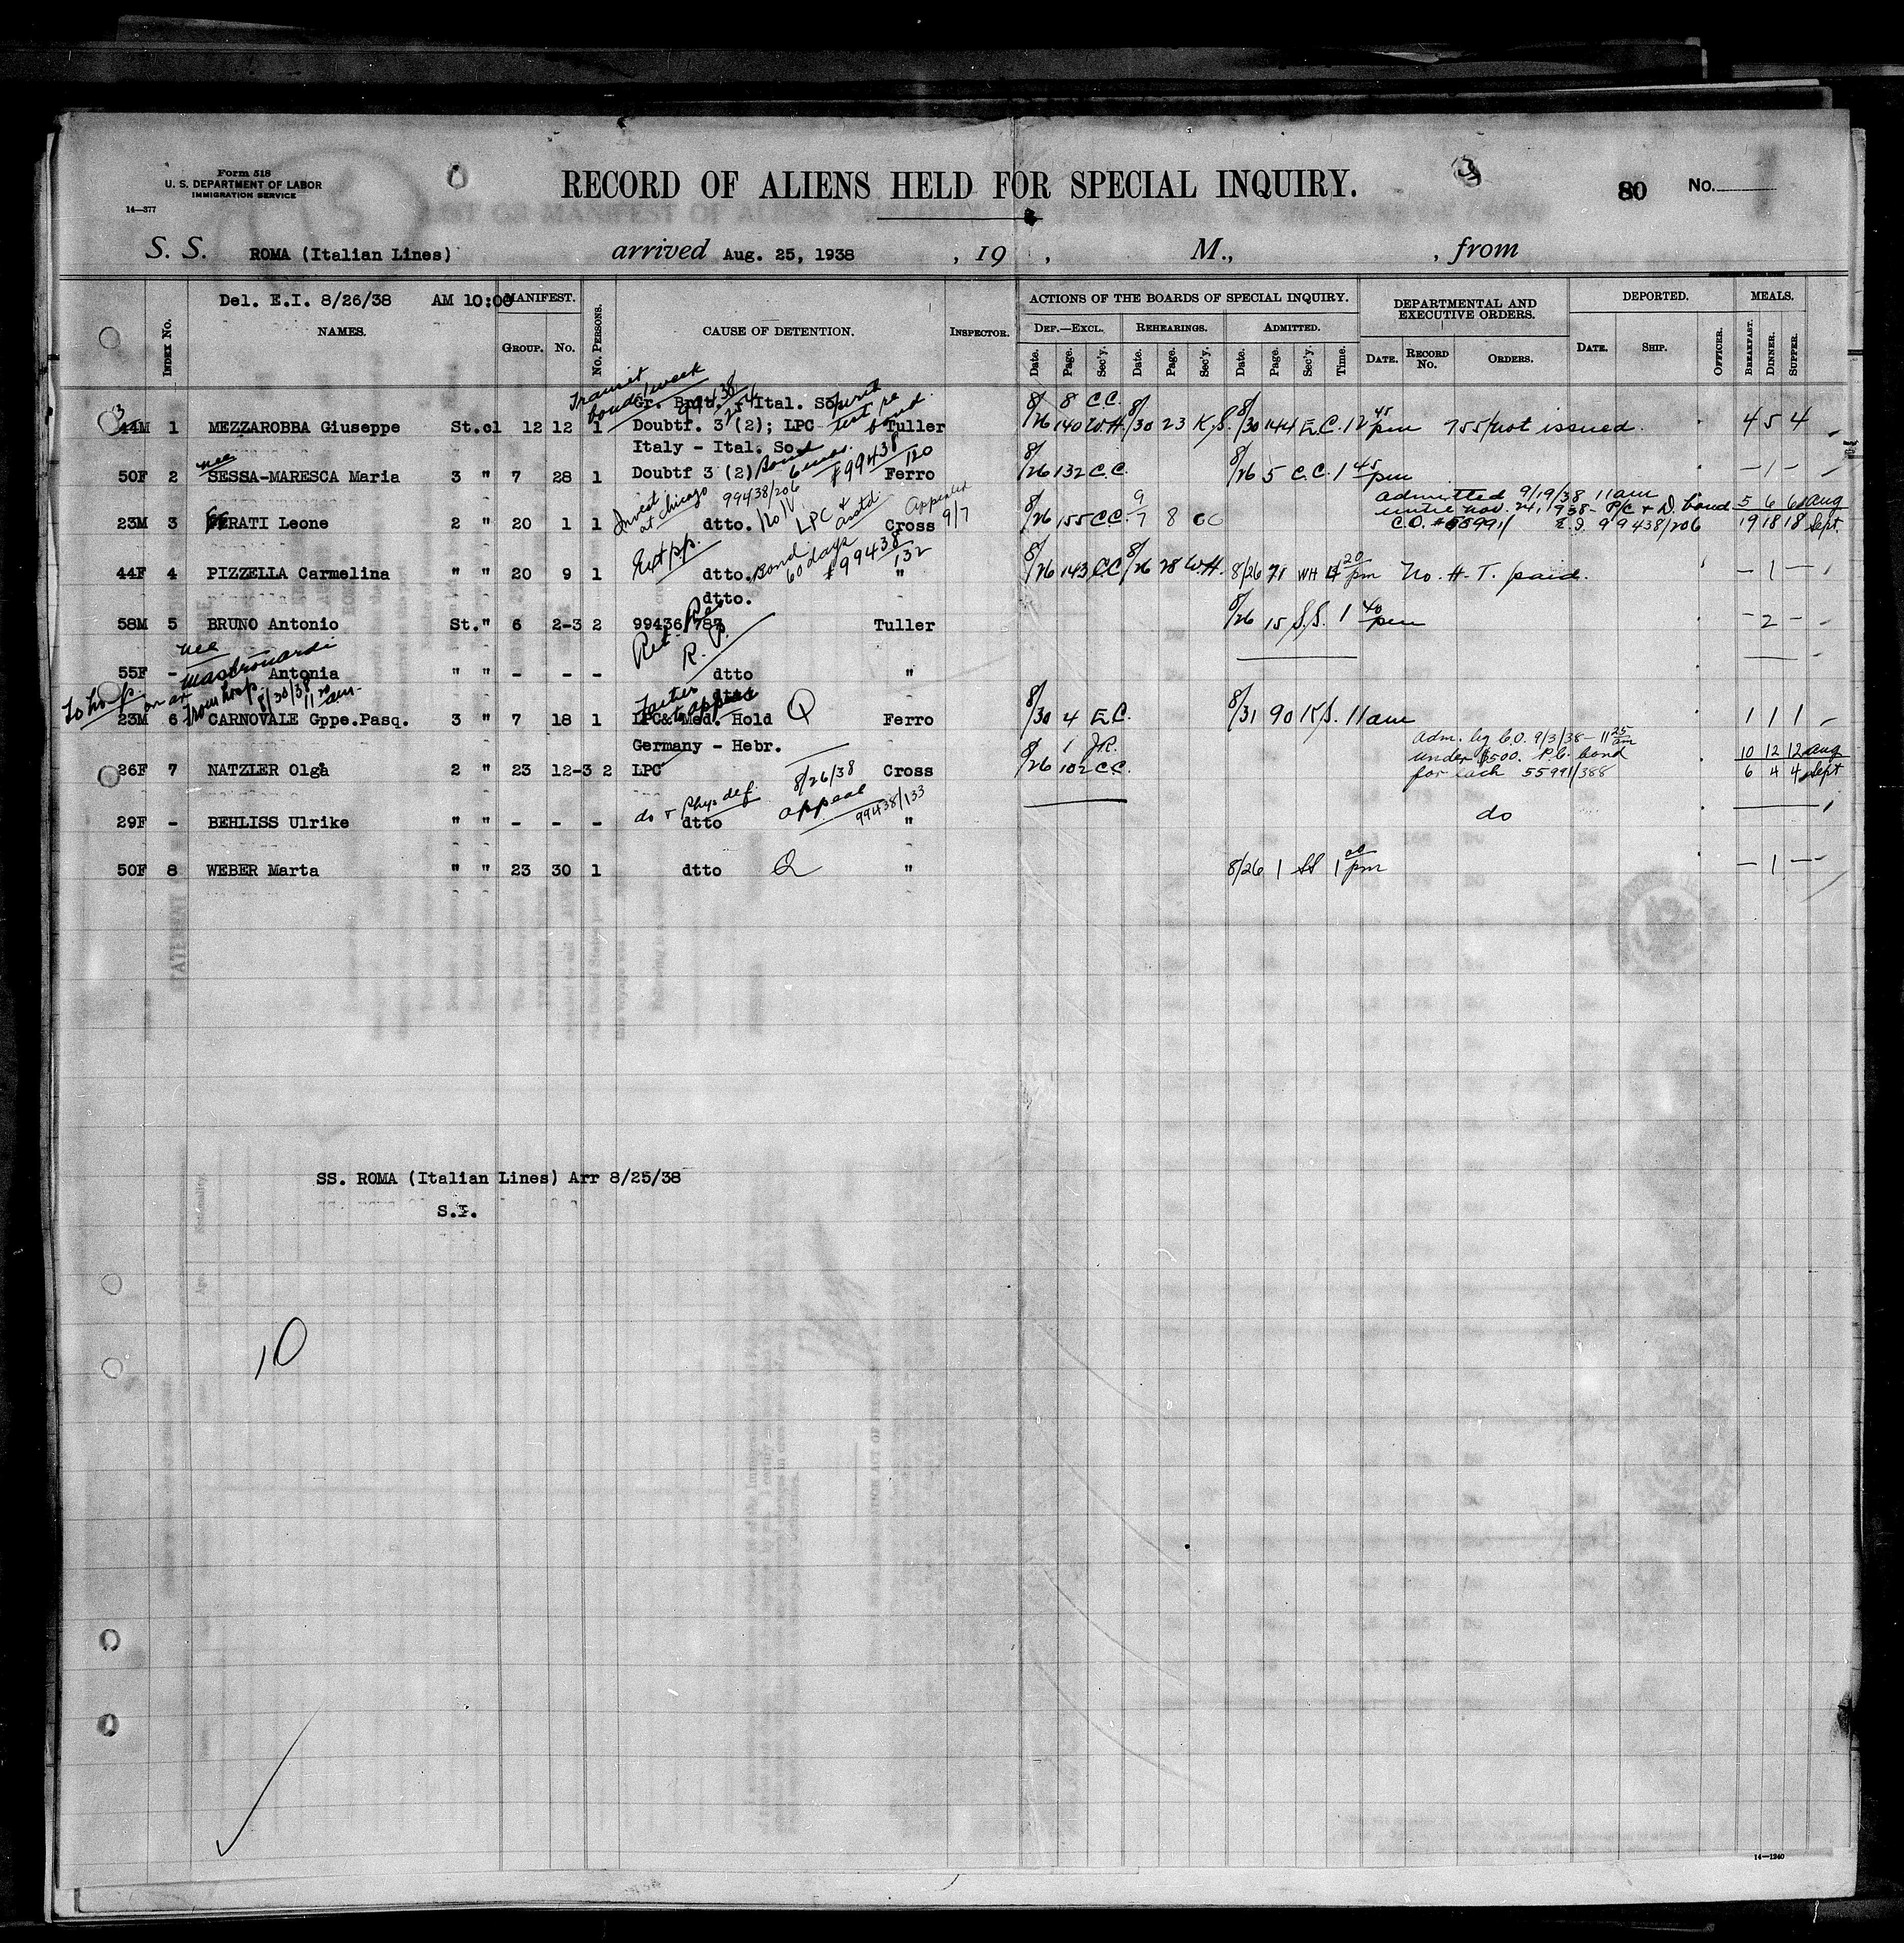 Form 518
U. S. DEPARTMENT OF LABOR
IMMIGRATION SERVICE
14—377
RECORD OF ALIENS HELD FOR SPECIAL INQUIRY.
3
80 No.
S. S. ROMA (Italian Lines) arrived Aug. 25, 1938 , 19 , M., , from
Del. E.I. 8/26/38 AM 10:00
INDEX No. NAMES. MANIFEST. GROUP. No. No. PERSONS. CAUSE OF DETENTION. INSPECTOR.
ACTIONS OF THE BOARDS OF SPECIAL INQUIRY.
DEF.—EXCL. REHEARINGS. ADMITTED.
Date. Page. Sec'y. Date. Page. Sec'y. Date. Page. Sec'y. Time.
DEPARTMENTAL AND EXECUTIVE ORDERS.
DATE. RECORD No. ORDERS.
DEPORTED.
DATE. SHIP. OFFICER.
MEALS.
BREAKFAST. DINNER. SUPPER.
Transit bond 1 week 99438/254
Gr. Brit. - Ital. So.
44M 1 MEZZAROBBA Giuseppe St.cl 12 12 1 Doubtf. 3 (2); LPC Tuller 8/26 140 W.H. 8 C.C. 8/30 23 K.S. 8/30 144 E.C. 12 45 pm 755/not issued. 4 5 4
Italy - Ital. So.
nee
50F 2 SESSA-MARESCA Maria 3 " 7 28 1 Doubtf 3 (2) Bond 6 mos. #99438/120 Ferro 8/26 132 C.C. 8/26 5 C.C. 1 45 pm – 1 –
Invest at Chicago 99438/206 LPC & Appealed 9/7
admitted 9/19/38 11am
until Nov. 24, 1938 - P/C & D. bond 5 6 6 Aug
23M 3 ERATI Leone 2 " 20 1 1 dtto. Cross 8/26 155 C.C. 9/7 8 CC C.O. #55991/ E.I. 99438/206 19 18 18 Sept.
Bond 60 days #99438/132
44F 4 PIZZELLA Carmelina " " 20 9 1 dtto. " 8/26 143 C.C. 8/26 28 W.H. 8/26 71 WH 20 pm No. H. T. paid. – 1 –
dtto.
58M 5 BRUNO Antonio St." 6 2-3 2 99436/787 Tuller 8/26 15 S.S. 1 40 pm – 2 –
R. P.
nee Mastronardi
55F - Antonia " " - - - dtto "
To hosp on ar
from hosp. 8/30/38 11 am.
dtto
to appear
23M 6 CARNOVALE Gppe.Pasq. 3 " 7 18 1 LPC& Med. Hold Q Ferro 8/30 4 E.C. 8/31 90 K.S. 11am 1 1 1
Germany - Hebr.
Adm. by C.O. 9/3/38 – 11 25 am
under $500. P.C. bond
for each 55991/388
26F 7 NATZLER Olga 2 " 23 12-3 2 LPC Cross 8/26 102 C.C. 1 J.R. 10 12 12 Aug
6 4 4 Sept
do & Phys def. 8/26/38 appeal 99438/133
29F - BEHLISS Ulrike " " - - - dtto " do
50F 8 WEBER Marta " " 23 30 1 dtto Q " 8/26 1 SS 1 00 pm – 1 –
SS. ROMA (Italian Lines) Arr 8/25/38
S.I.
10
14—1240